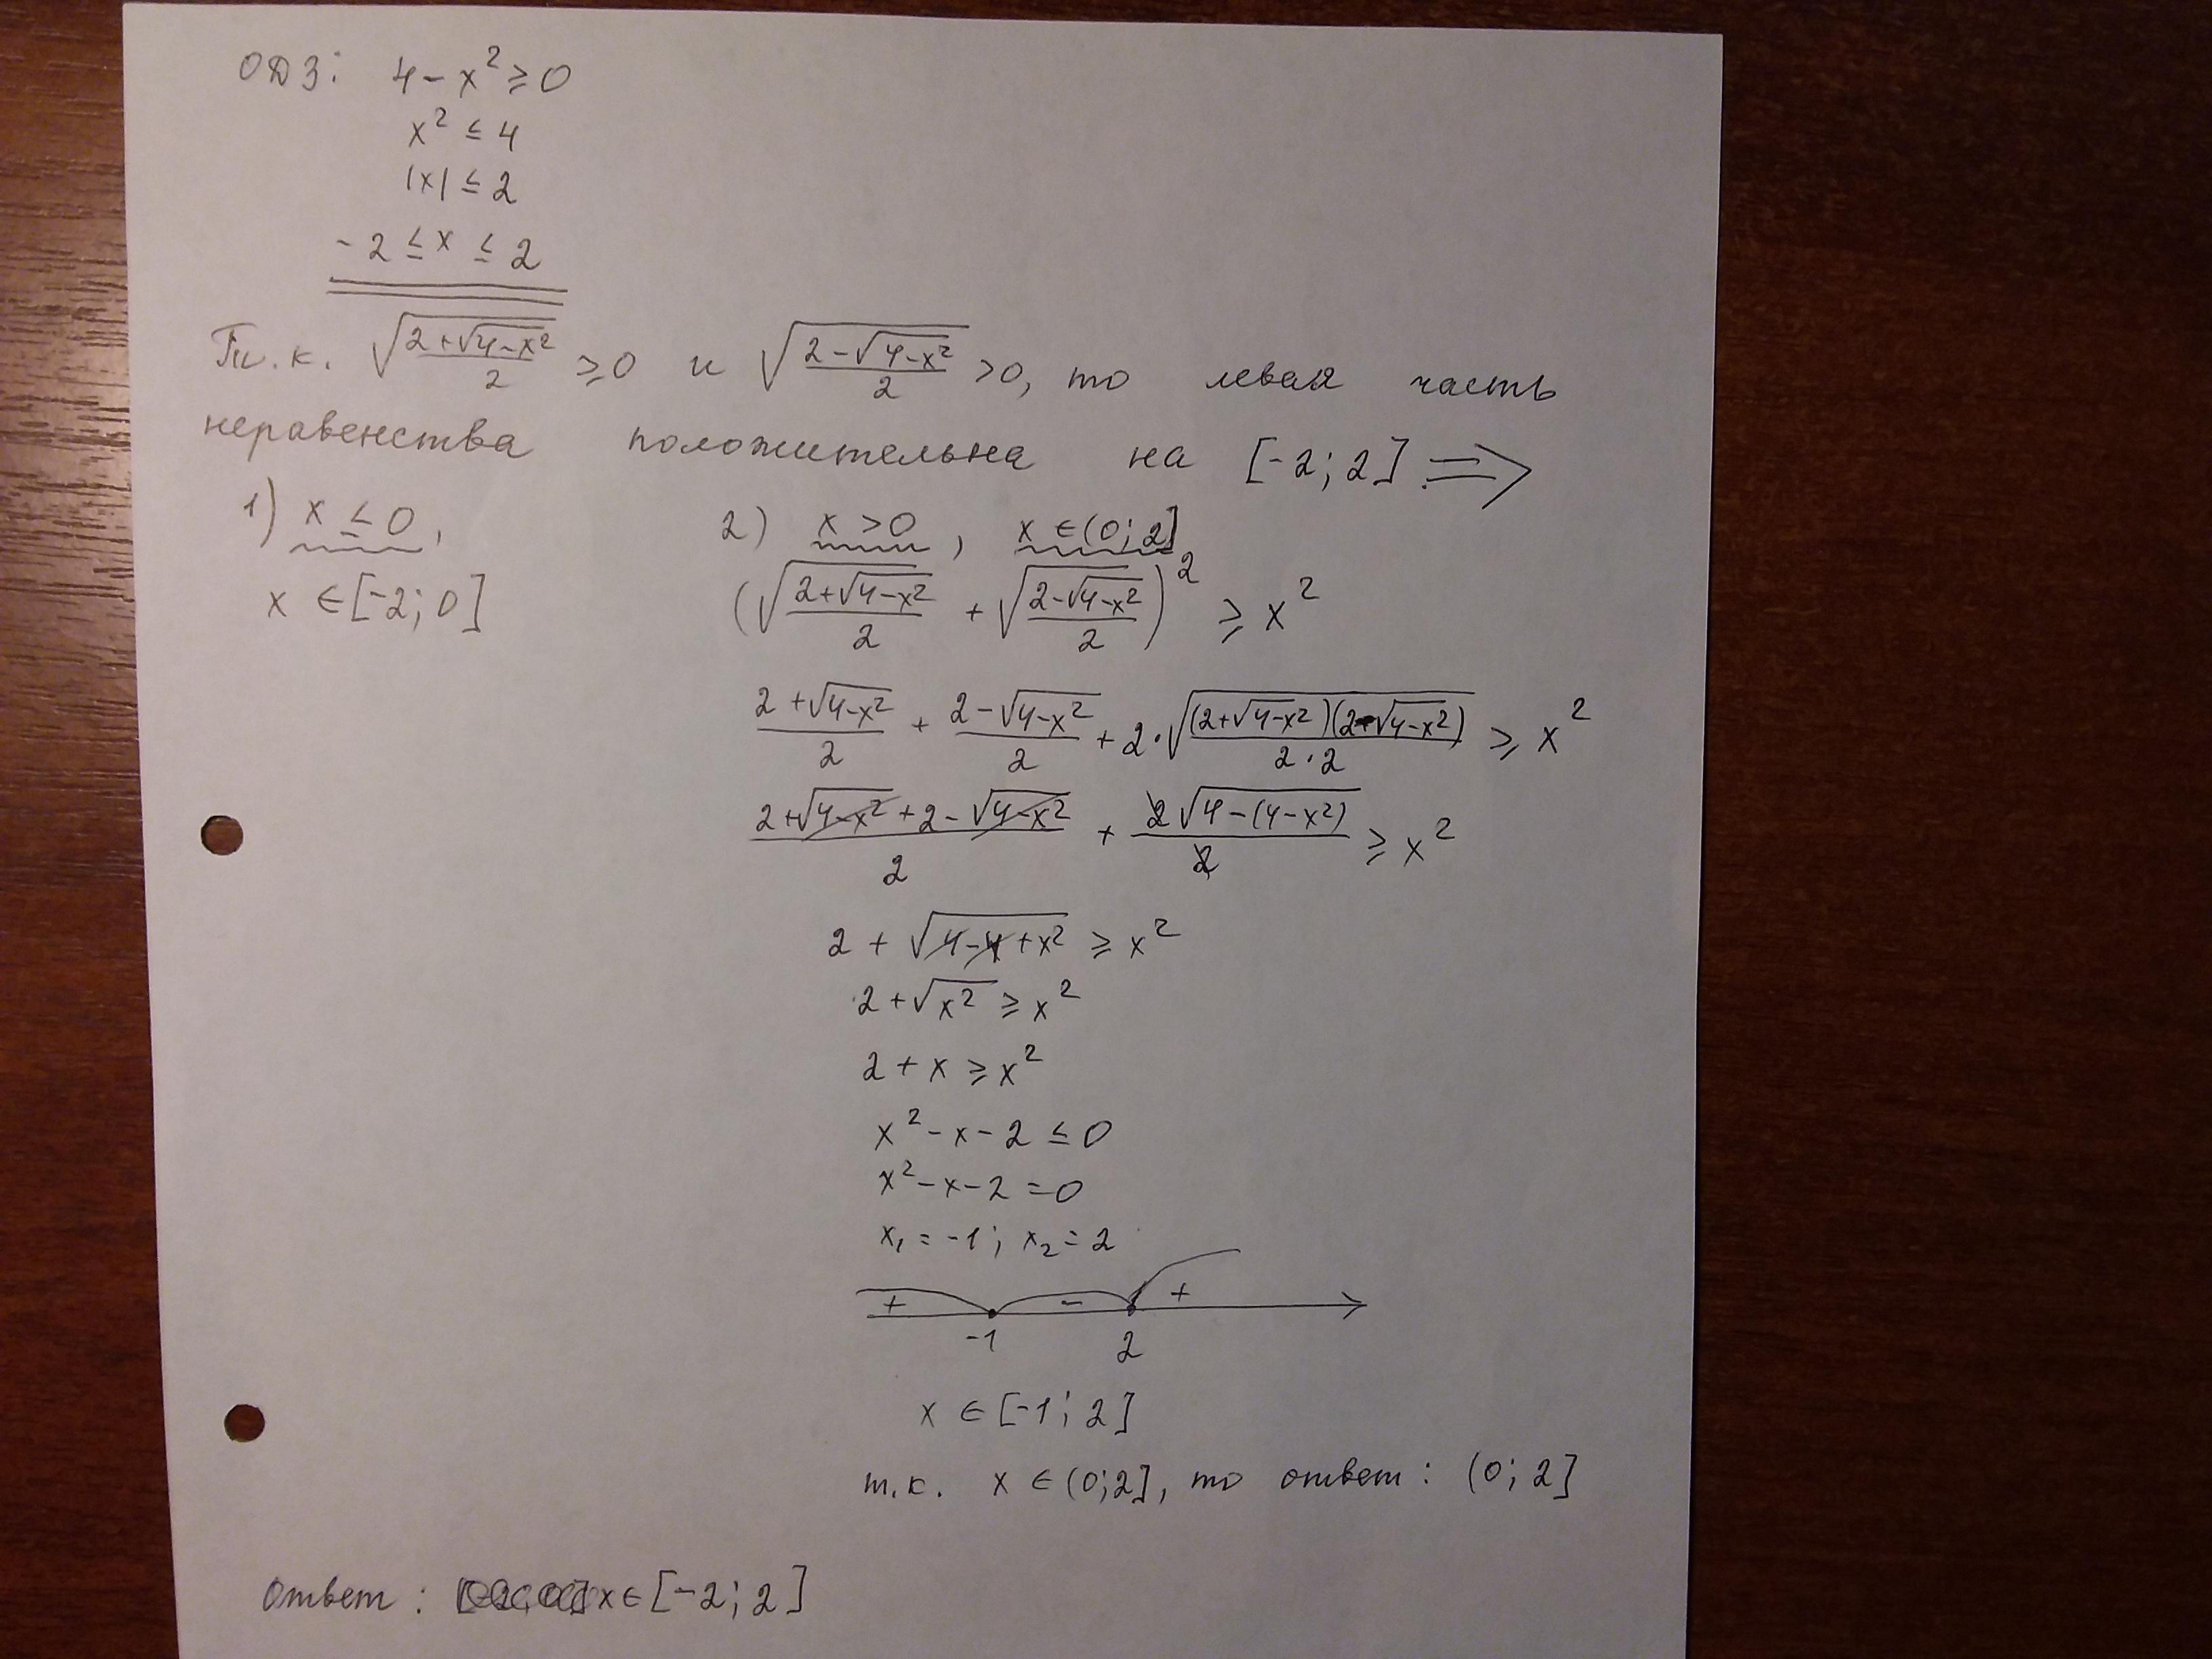 ОДЗ: 4 - x² ≥ 0
x² ≤ 4
|x| ≤ 2
-2 ≤ x ≤ 2
Т.к. √((2+√(4-x²))/2) ≥ 0 и √((2-√(4-x²))/2) > 0, то левая часть
неравенства положительна на [-2; 2] ⟹
1) x ≤ 0,
x ∈ [-2; 0]
2) x > 0, x ∈ (0; 2]
(√((2+√(4-x²))/2) + √((2-√(4-x²))/2))² ≥ x²
(2+√(4-x²))/2 + (2-√(4-x²))/2 + 2·√((2+√(4-x²))(2-√(4-x²))/(2·2)) ≥ x²
(2+√(4-x²)+2-√(4-x²))/2 + 2√(4-(4-x²))/2 ≥ x²
2 + √(4-4+x²) ≥ x²
2 + √(x²) ≥ x²
2 + x ≥ x²
x² - x - 2 ≤ 0
x² - x - 2 = 0
x₁ = -1; x₂ = 2
+ - +
-1 2
x ∈ [-1; 2]
т.к. x ∈ (0; 2], то ответ: (0; 2]
Ответ: x ∈ [-2; 2]